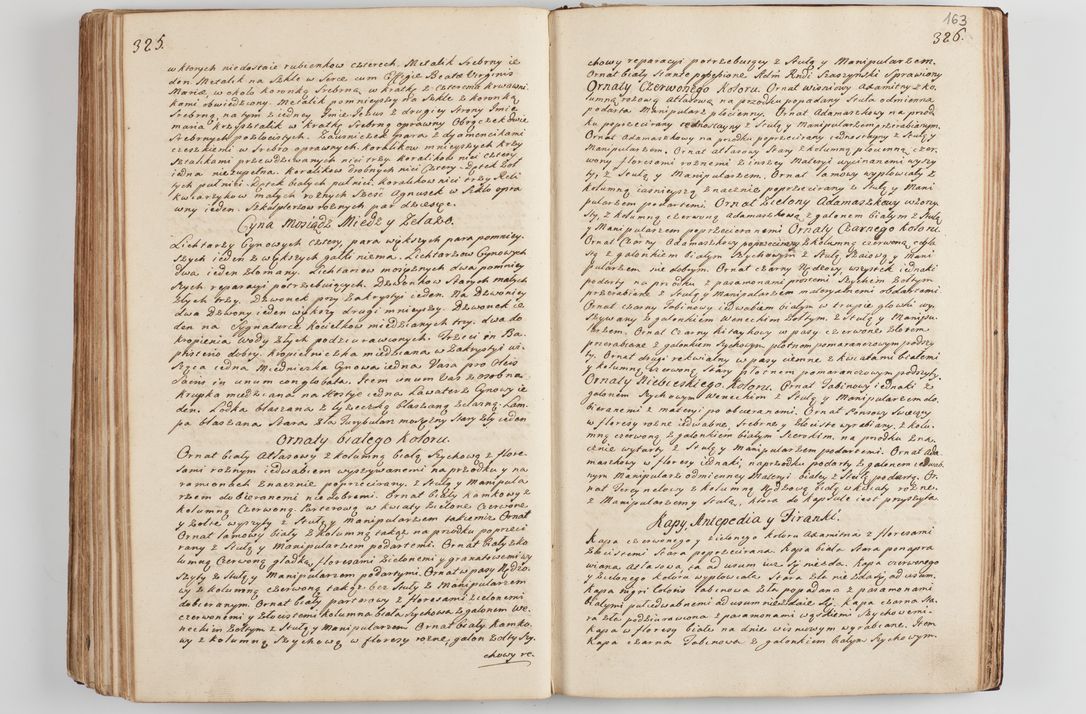 325.
w ktorych niedostaie rubienkow czterech. Metalik Srebrny ie
den. Metalik na Szkle w Sercu cum Effigie Beatæ Virginis
Mariæ, w okolo koronką Srebrną, w kratkę z czterema krwawni
kami obwiedziony. Metalik pomnieyszy na Szkle z koronką
Srebrną, na tym z iedney Imie Jezus z drugiey Strony Imie
maria krzysztalik w kratkę Srebrną oprawny Obrączek dwie
Srebrnych pozłocistych. Zausniczek para z dyamencikami
czeskiemi w Srebro oprawnych. koralikow mnieyszych krzy
sztalikami przewdziewanych nici trzy. koralikow nici cztery
iedna niezupełna. koralikow drobnych nici cztery.
tych puł nitki. białych puł nici. koralikow nici trzy
małych rożnych Sześć Agnusek w Szkło opra
wny ieden. Szkaplerzow rożnych par dziesięc.
Cyna Mosiądz Miedz y Zelazo.
Lichtarzy Cynowych cztery, para większych para pomniey
szych ieden z większych gałki niema. Lichtarzow Cynowych
dwa ieden złomany. Lichtarzow mosiężnych dwa pomniey
szych reparacyi potrzebuiących. Dzwonkow Starych małych
złych trzy. Dzwonek przy Zakrystyi ieden. Na Dzwonicy
dwa Dzwony ieden większy drugi mnieyszy. Dzwonek ie
den na Sygnaturce kociełkow miedzianych trzy. dwa do
kropienia wody złych podziurawionych. Trzeci in Ba
phisterio dobry. Kropielniczka miedziana w Zakrystyi wi
sząca iedna Miedniczka Cynowa iedna Vasa pro Oleis
Sacris in unum conglobata. Item unum Vas
krupka miedziana na Hostye iedna Lawaterz Cynowy ie
den. Łodka blaszana z łyzeczką blaszaną żelazną. Lam
pa blaszana Stara zła Turybularz mosiężny Stary zły ieden
Ornaty białego koloru.
Ornat biały Atłasowy z kolumną białą Szychową z flore
sami rożnym iedwabiem wyszywanemi na przodku y na
ramionach znacznie poprzecirany. z Stułą y Manipula
rzem dobieranemi niedobremi. Ornat biały kamkowy z
kolumną czerwoną Parterową w kwiaty zielone Czerwone
y żołte wyszyty z Stułą y Manipularzem takiemiż. Ornat
Ornat lamowy biały z kolumną takąż na przodku poprzeci
rany z Stułą y Manipularzem podartemi. Ornat biały z ko
lumną Czerwoną gładką, floresami zielonemi y granatowemi wy
szyty z Stułą y Manipularzem podartymi. Ornat w pasy Rydzo
wy z kolumną czerwoną takąż bez Stuły z Manipularzem
dobieranym. Ornat biały parterowy z floresami zielonemi
czerwonemi y złocistemi kolumna biała Szychowa z galonem we
neckim żołtym z Stułą y Manipularzem Ornat biały kamko
wy z kolumną Szychową w floresy rożne, galon żołty Szy
chowy re.

163
326.
chowy reparacyi potrzebuiący z Stułą y Manipularzem.
Ornat biały Sprawiony
Ornaty Czerwonego koloru. Ornat wisniowy Axamitny z ko
lumną rożową atłasową na przodku popadany Stuła odmienna
podarta Manipularz płocienny. Ornat Adamaszkowy na przod
ku poprzecirany z Stułą y Manipularzem
Ornat Adamaszkowy na przodku poprzecirany iednostayny z Stułą y
Manipularzem. Ornat atłasowy Stary z kolumną płocienną czer
wony floresami rożnemi z inszey Materyi wycinanemi wyszy
ty, z Stułą y Manipularzem. Ornat lamowy wypłowiały z
kolumną iasnieyszą znacznie poprzecirany z Stułą y Mani
pularzem podartemi. Ornat Zielony Adamaszkowy wzorzy
sty, z kolumną czerwoną adamaszkową z galonem białym z Stułą
y Manipularzem poprzecieranemi Ornaty Czarnego koloru.
Ornat Czarny Adamaszkowy poprzecirany z kolumną czerwoną ceglas
tą z galonkiem białym Szychowym z Stułą y Mani
pularzem nie dobrym. Ornat czarny Rydzowy wszystek iednaki
podarty na przodku z pasamonami prostemi Szychem żołtym
przerabiane z Stułą y Manipularzem materyalnemi obdartemi
Ornat czarny Tabinowy iedwabiem białym w trupie głowki wy
szywany z galonkiem Weneckim żołtym, z Stułą y Manipu
larzem. Ornat Czarny kitaykowy w pasy czerwone złotem
przerabiane z galonkiem Szychowym, płotnem pomaranczowym podszy
ty. Ornat drugi rekwialny w pasy ciemne z kwiatkami białemi
y kolumną Czerwoną Stary płotnem pomaranczowym podszyty.
Ornaty Niebieskiego koloru. Ornat Tabinowy iednaki z
galonem Szychowym Weneckim z Stułą y Manipularzem do
bieranemi z materyi po obieranemi. Ornat Ponsowy Swięcący
w floresy rożne iedwabne, Srebrne y złociste wyrabiany, z kolu
mną czerwoną z galonkiem białym Szerokim. na przodku zna
cznie wytarty z Stułą y Manipularzem podartemi. Ornat Ada
maszkowy w floresy iednaki, na przodku podarty z galonem iedwab
nym Manipularz odmienney Materyi białey z Stułą podartą. Or
nat Tercynelowy z kolumną Rydzową białą w kwiaty rożne.
z Manipularzem y Stułą, ktora do kapsule iest przyszyta
Kapy, Antepedia y Firanki.
Kapa czerwonego y zielonego koloru Axamitna z floresami
złocistemi Stara poprzecirana. Kapa biała Stara ponapra
wiana atłasowa ta ad usum iuz się niezda. Kapa czerwonego
y zielonego koloru wypłowiała Stara zła nie zdały ad usum.
Kapa nigri Coloris Tabinowa zła popadana z pasamonami
białymi puł iedwabnemi ad usum niezdaie się. Kapa czarna Sta
ra zła podziurawiona z pasamonami wąskiemi Szychowemi.
Kapa w floresy białe na dnie wisniowym wyrabiane. Item
Kapa czarna Tabinowa z galonkiem białym Szychowym.